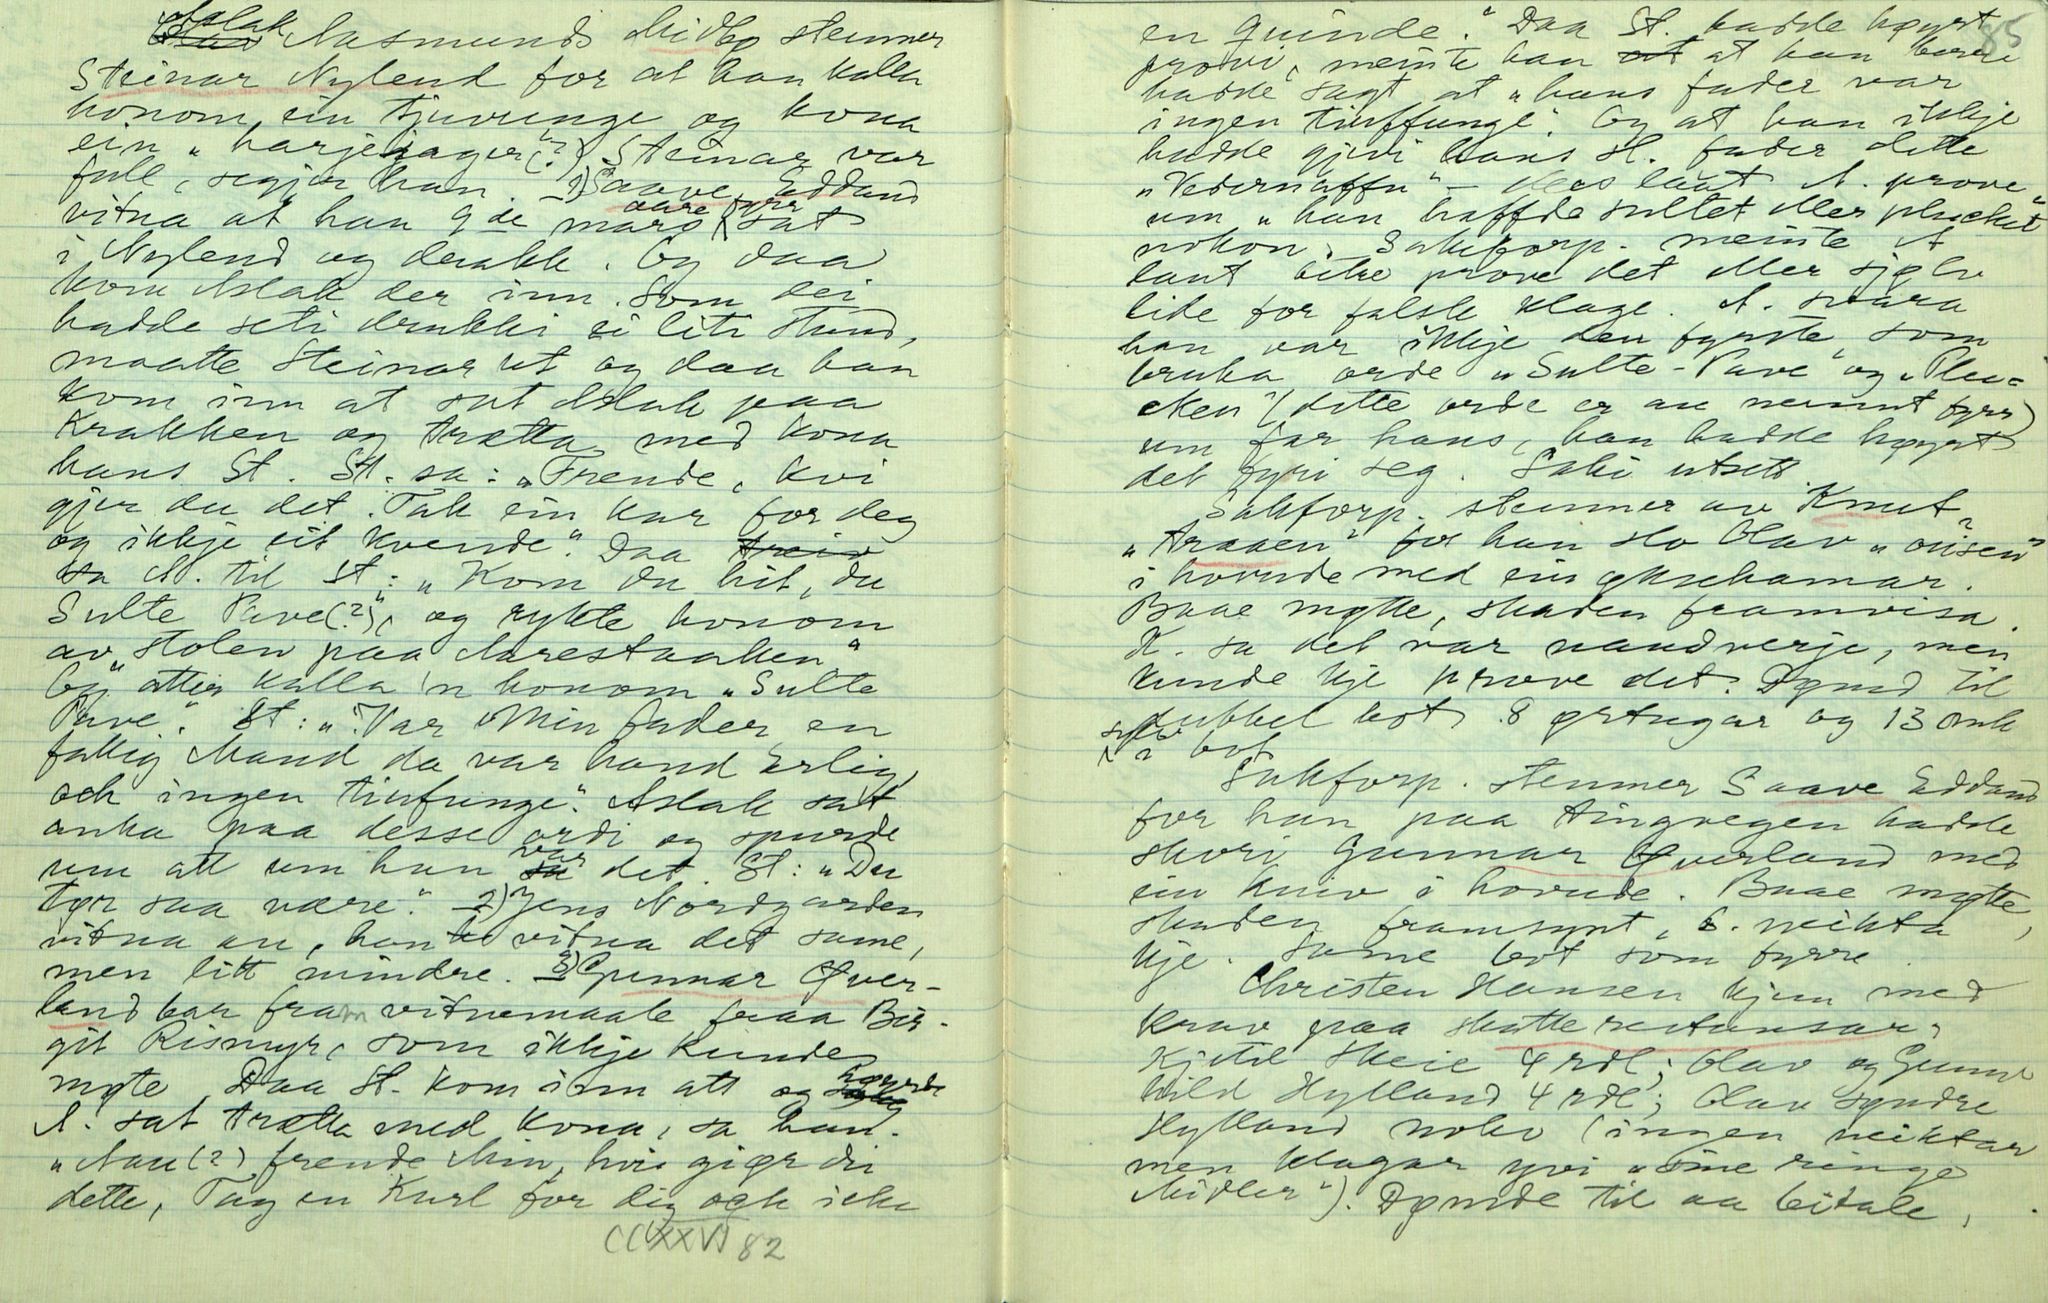 Aslak
Aasmunds Midbø stemner
Steinar Nylend for at han kalla
honom ein tjuvunge og kona
ein „harjejager(?). Steinar var
full, segjer han. 1) Saave Eddand
vitna at han 9de mars aare fyrr sat
i Nylend og drakk. Og daa
kom Aslak der inn. Som dei
hadde seti drukki ei liti stund,
maatte Steinar ut og daa han
kom inn at sat Aslak paa
Krakken og trætta med kona
hans St. St. sa: „Frende, kvi
gjer du det. Tak ein kar for deg
og ikkje eit kvende." Daa
sa A. til St: „Kom du hit, du
Sulte Pave(?)", og rykte honom
av stolen paa Arestaaken"
Og atter kalla 'n honom „Sulte
Pave". St: „Var Min fader en
fattig Mand da var hand Erlig
och ingen tiufunge". Aslak sat
anka paa desse ordi og spurde
um att um han var det. St: „Du
tør saa være." 2) Jens Nordgarden
vitna au, han vitna det same,
men litt mindre. 3) Gunnar Øver-
land bar fram vitnemaale fraa Bir-
git Rismyr, som ikkje kunde
møte. Daa St. kom inn att og høyrde
A. sat trætta med kona, sa han.
„Nau(?) frende Min, hvi giør du
dette, Tag en Karl for dig och icke
CCXXVI 82
85
en quinde." Daa St. hadde høyrt
provi, meinte han at han berre
hadde sagt at „hans fader var
ingen tiuffunge". Og at han ikkje
hadde gjevi hans St. fader dette
„Vedernaffn" – Mes laut A. prove
um „han haffde sultet eller plucket"
nokon. Sakforp. meinte A
laut bitre prove det eller sjølv
lide for falsk klage. A. svara
han var ikkje den fyrste, som
bruka orde „Sulte-Pave" og „Plu-
cken" (dette orde er au nemnt fyrr)
um far hans, han hadde høyrt
det fyri seg. Saki utsett.
Sakforp. stemner av Knut
„Araaen" for han slo Olav „oisen"
i hovude med ein øksehamar.
Baae møtte, skaden framvisa.
K. sa det var naudverje, men
kunde kje prove det. Dømd til
dubbel bot 8 ørtugar og 13 mk
sylv i bot
Sakforp. stemner Saave Eddand
for han paa tingvegen hadde
skori Gunnar Øverland med
ein kniv i hovude. Baae møtte,
skaden framsynt, S. neikta
kje. Same bot som fyrre.
Christen Hansen kjem med
krav paa skatterestansar,
Kjetil Skeie 4 rdl; Olav og Gunn-
hild Hylland 4 rdl; Olav syndre
Hylland noko (ingen neiktar
men klagar yvi „sine ringe
Midler"). Dømde til aa beitale,